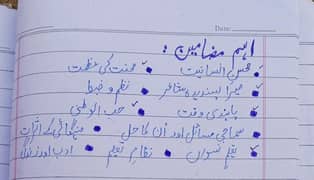 Date:
اہم مضامین:
محسن انسانیت • محنت کی عظمت
• میرا پسندیدہ شاعر • نظم و ضبط
• پابندی وقت • حب الوطنی
• سماجی مسائل اور ان کا حل • مہنگائی کے اثرات
• تعلیم نسواں • نظام تعلیم • ادب اور زندگی